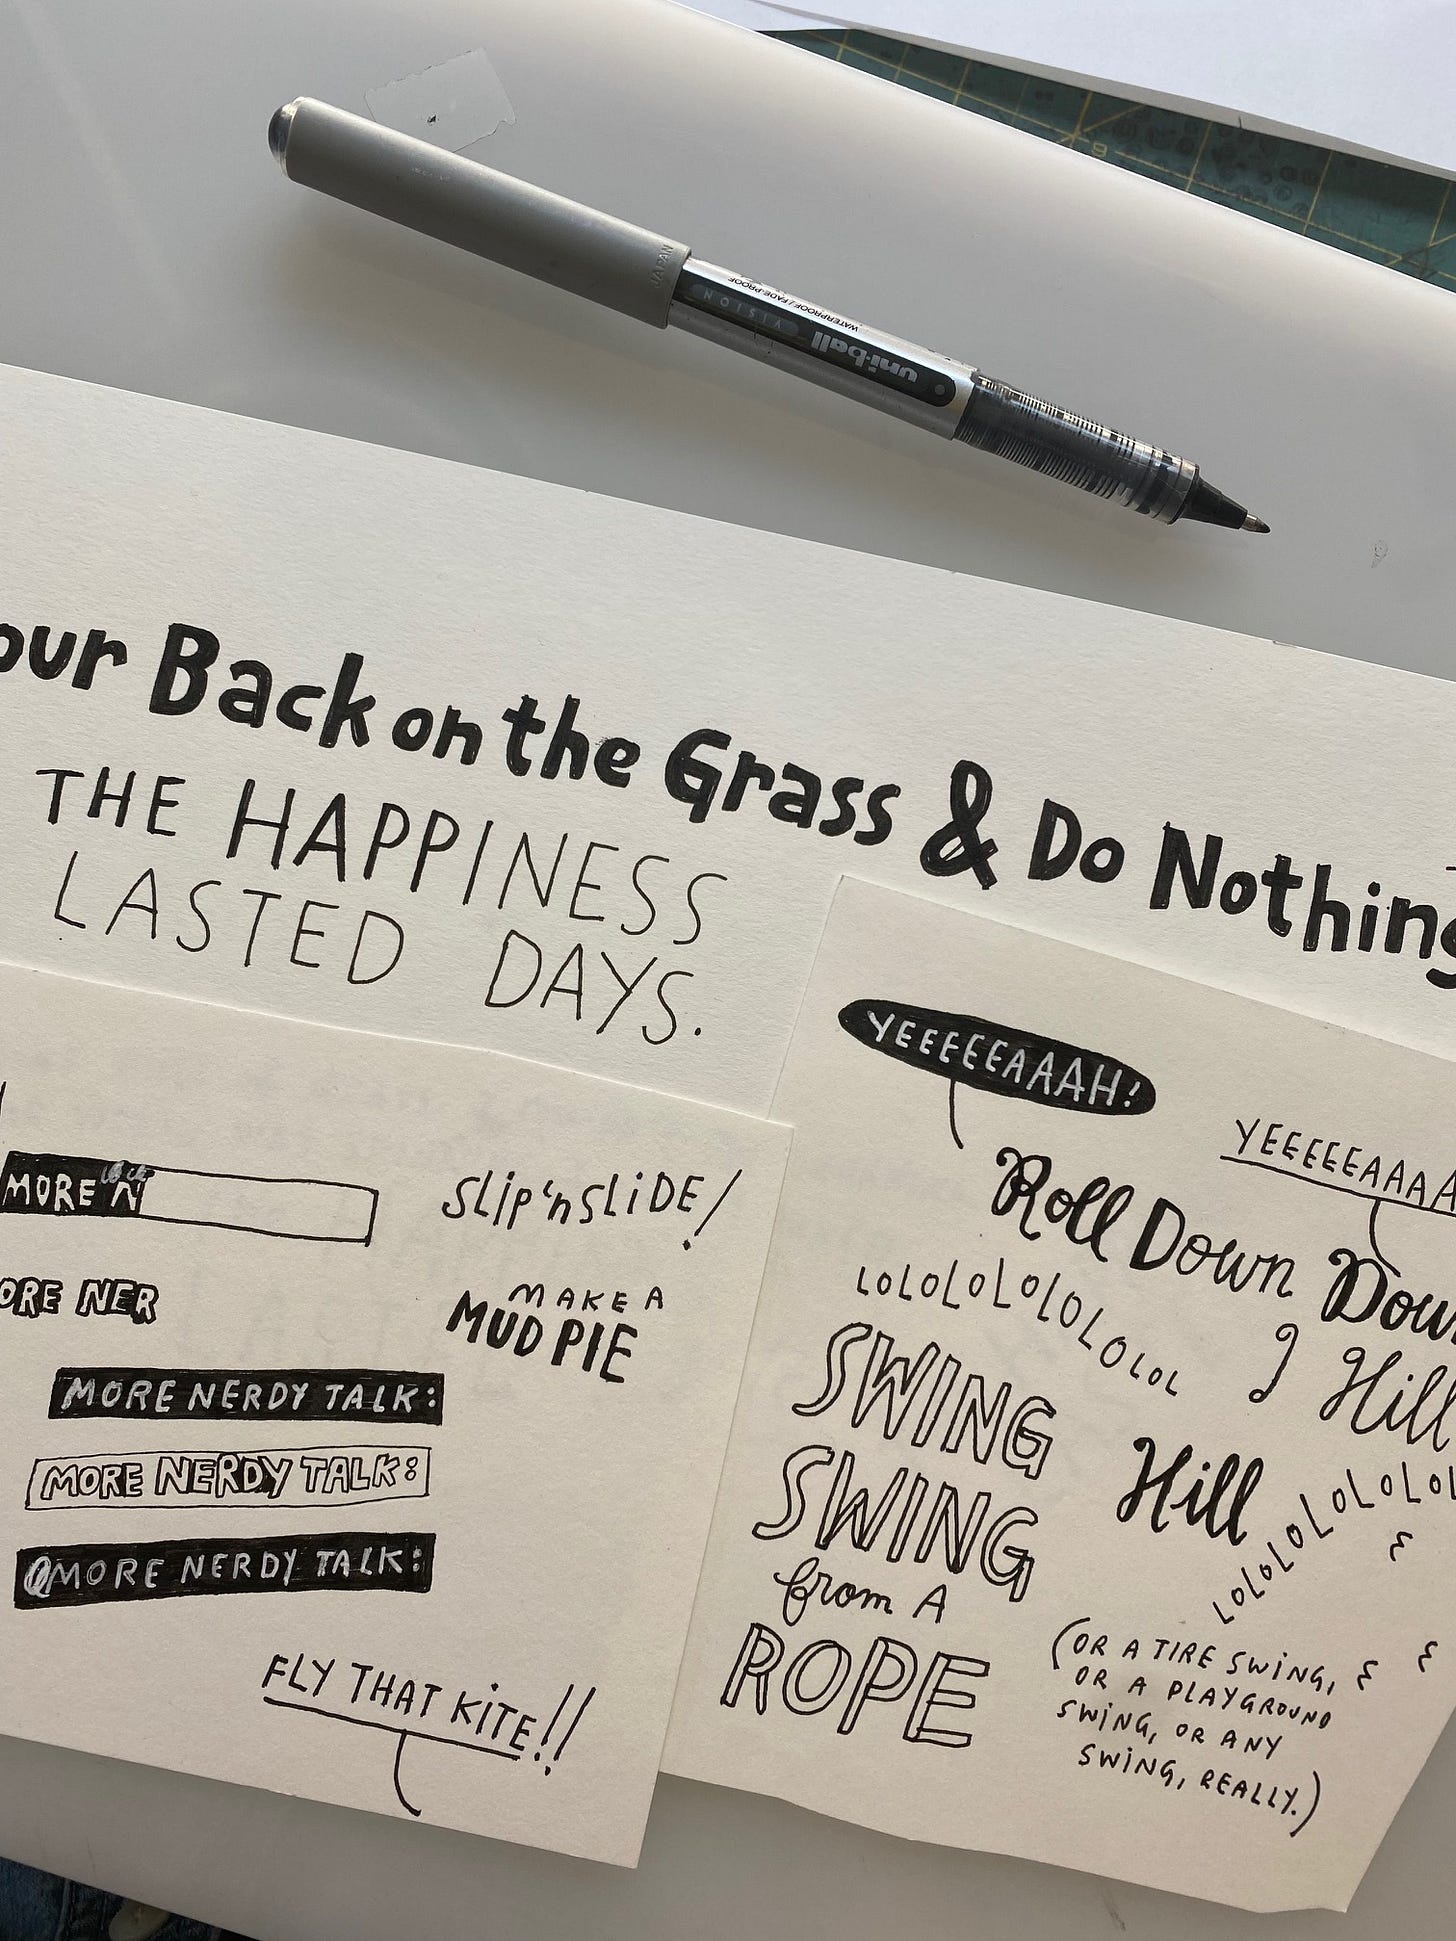 JAPAN
WATERPROOF/FADE-PROOF
VISION
uni-ball
our Back on the Grass & Do Nothing
THE HAPPINESS
LASTED DAYS.
MORE N
ORE NER
MORE NERDY TALK:
MORE NERDY TALK:
MORE NERDY TALK:
slip 'n SLiDE!
MAKE A
MUD PIE
FLY THAT KiTE!!
YEEEEEAAAH!
YEEEEEAAAA
Roll Down Dow
LOLOLOLOLOLOLOLOL
Hill
SWING
SWING
from A
ROPE
Hill
LOLOLOLOLOLOLOL
(OR A TIRE SWiNG,
OR A PLAYGROUND
SWiNG, OR ANY
SWiNG, REALLY.)